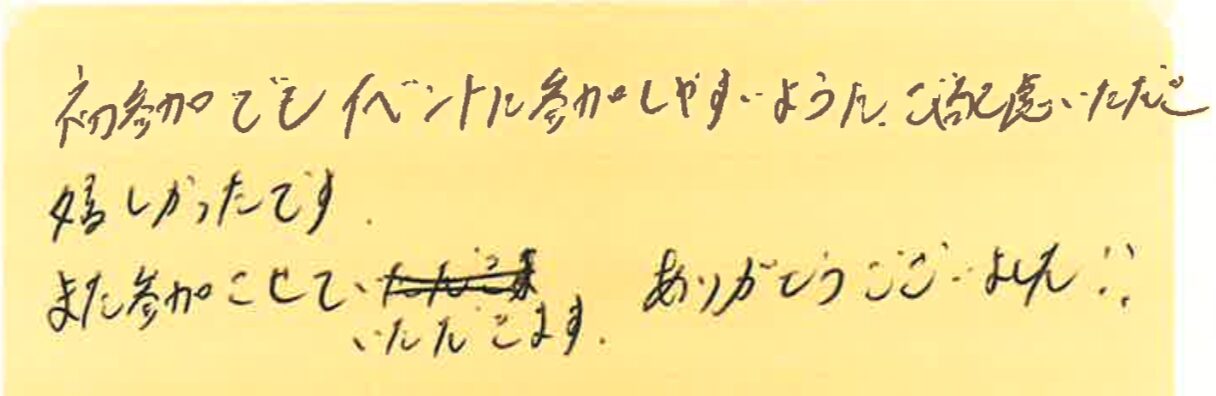 初参加でもイベントに参加しやすいように、ご配慮いただき
嬉しかったです.
また参加させていただきます. ありがとうございました!!